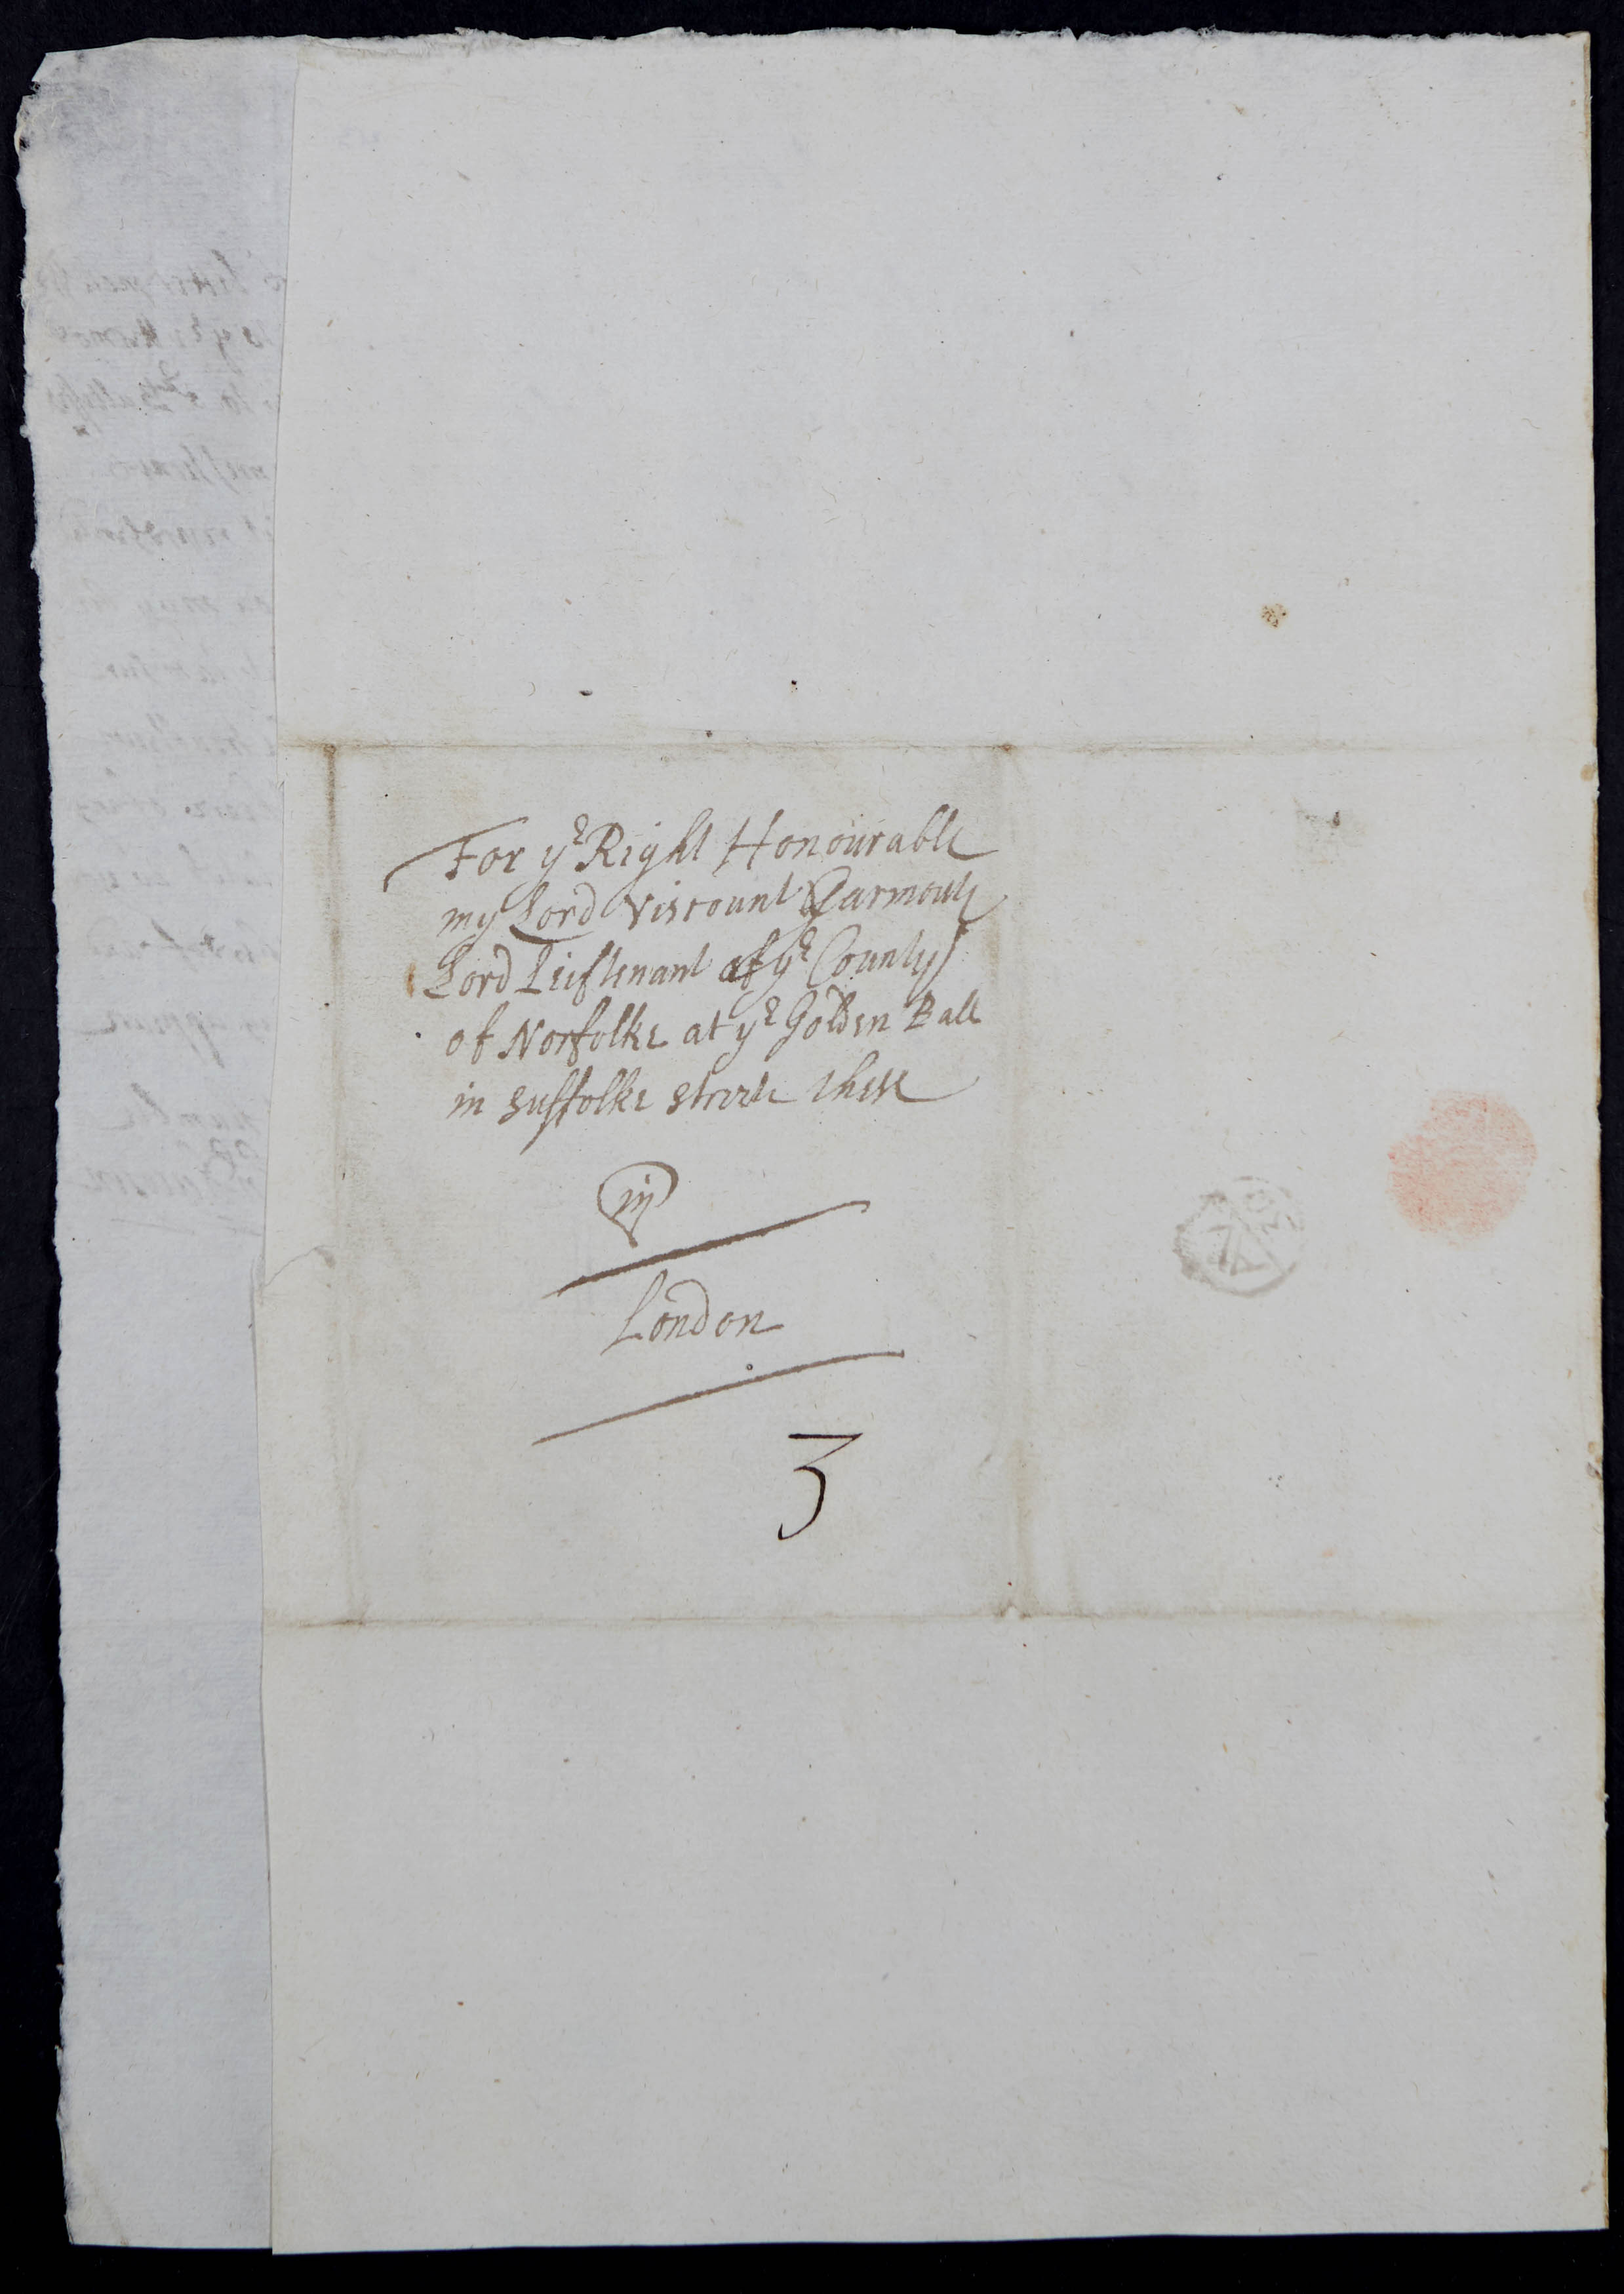 For yᵉ Right Honourable
my Lord Viscount Yarmouth
Lord Lieftenant of yᵉ County
of Norfolke at yᵉ Golden Ball
in Suffolke streete these
in
London
3